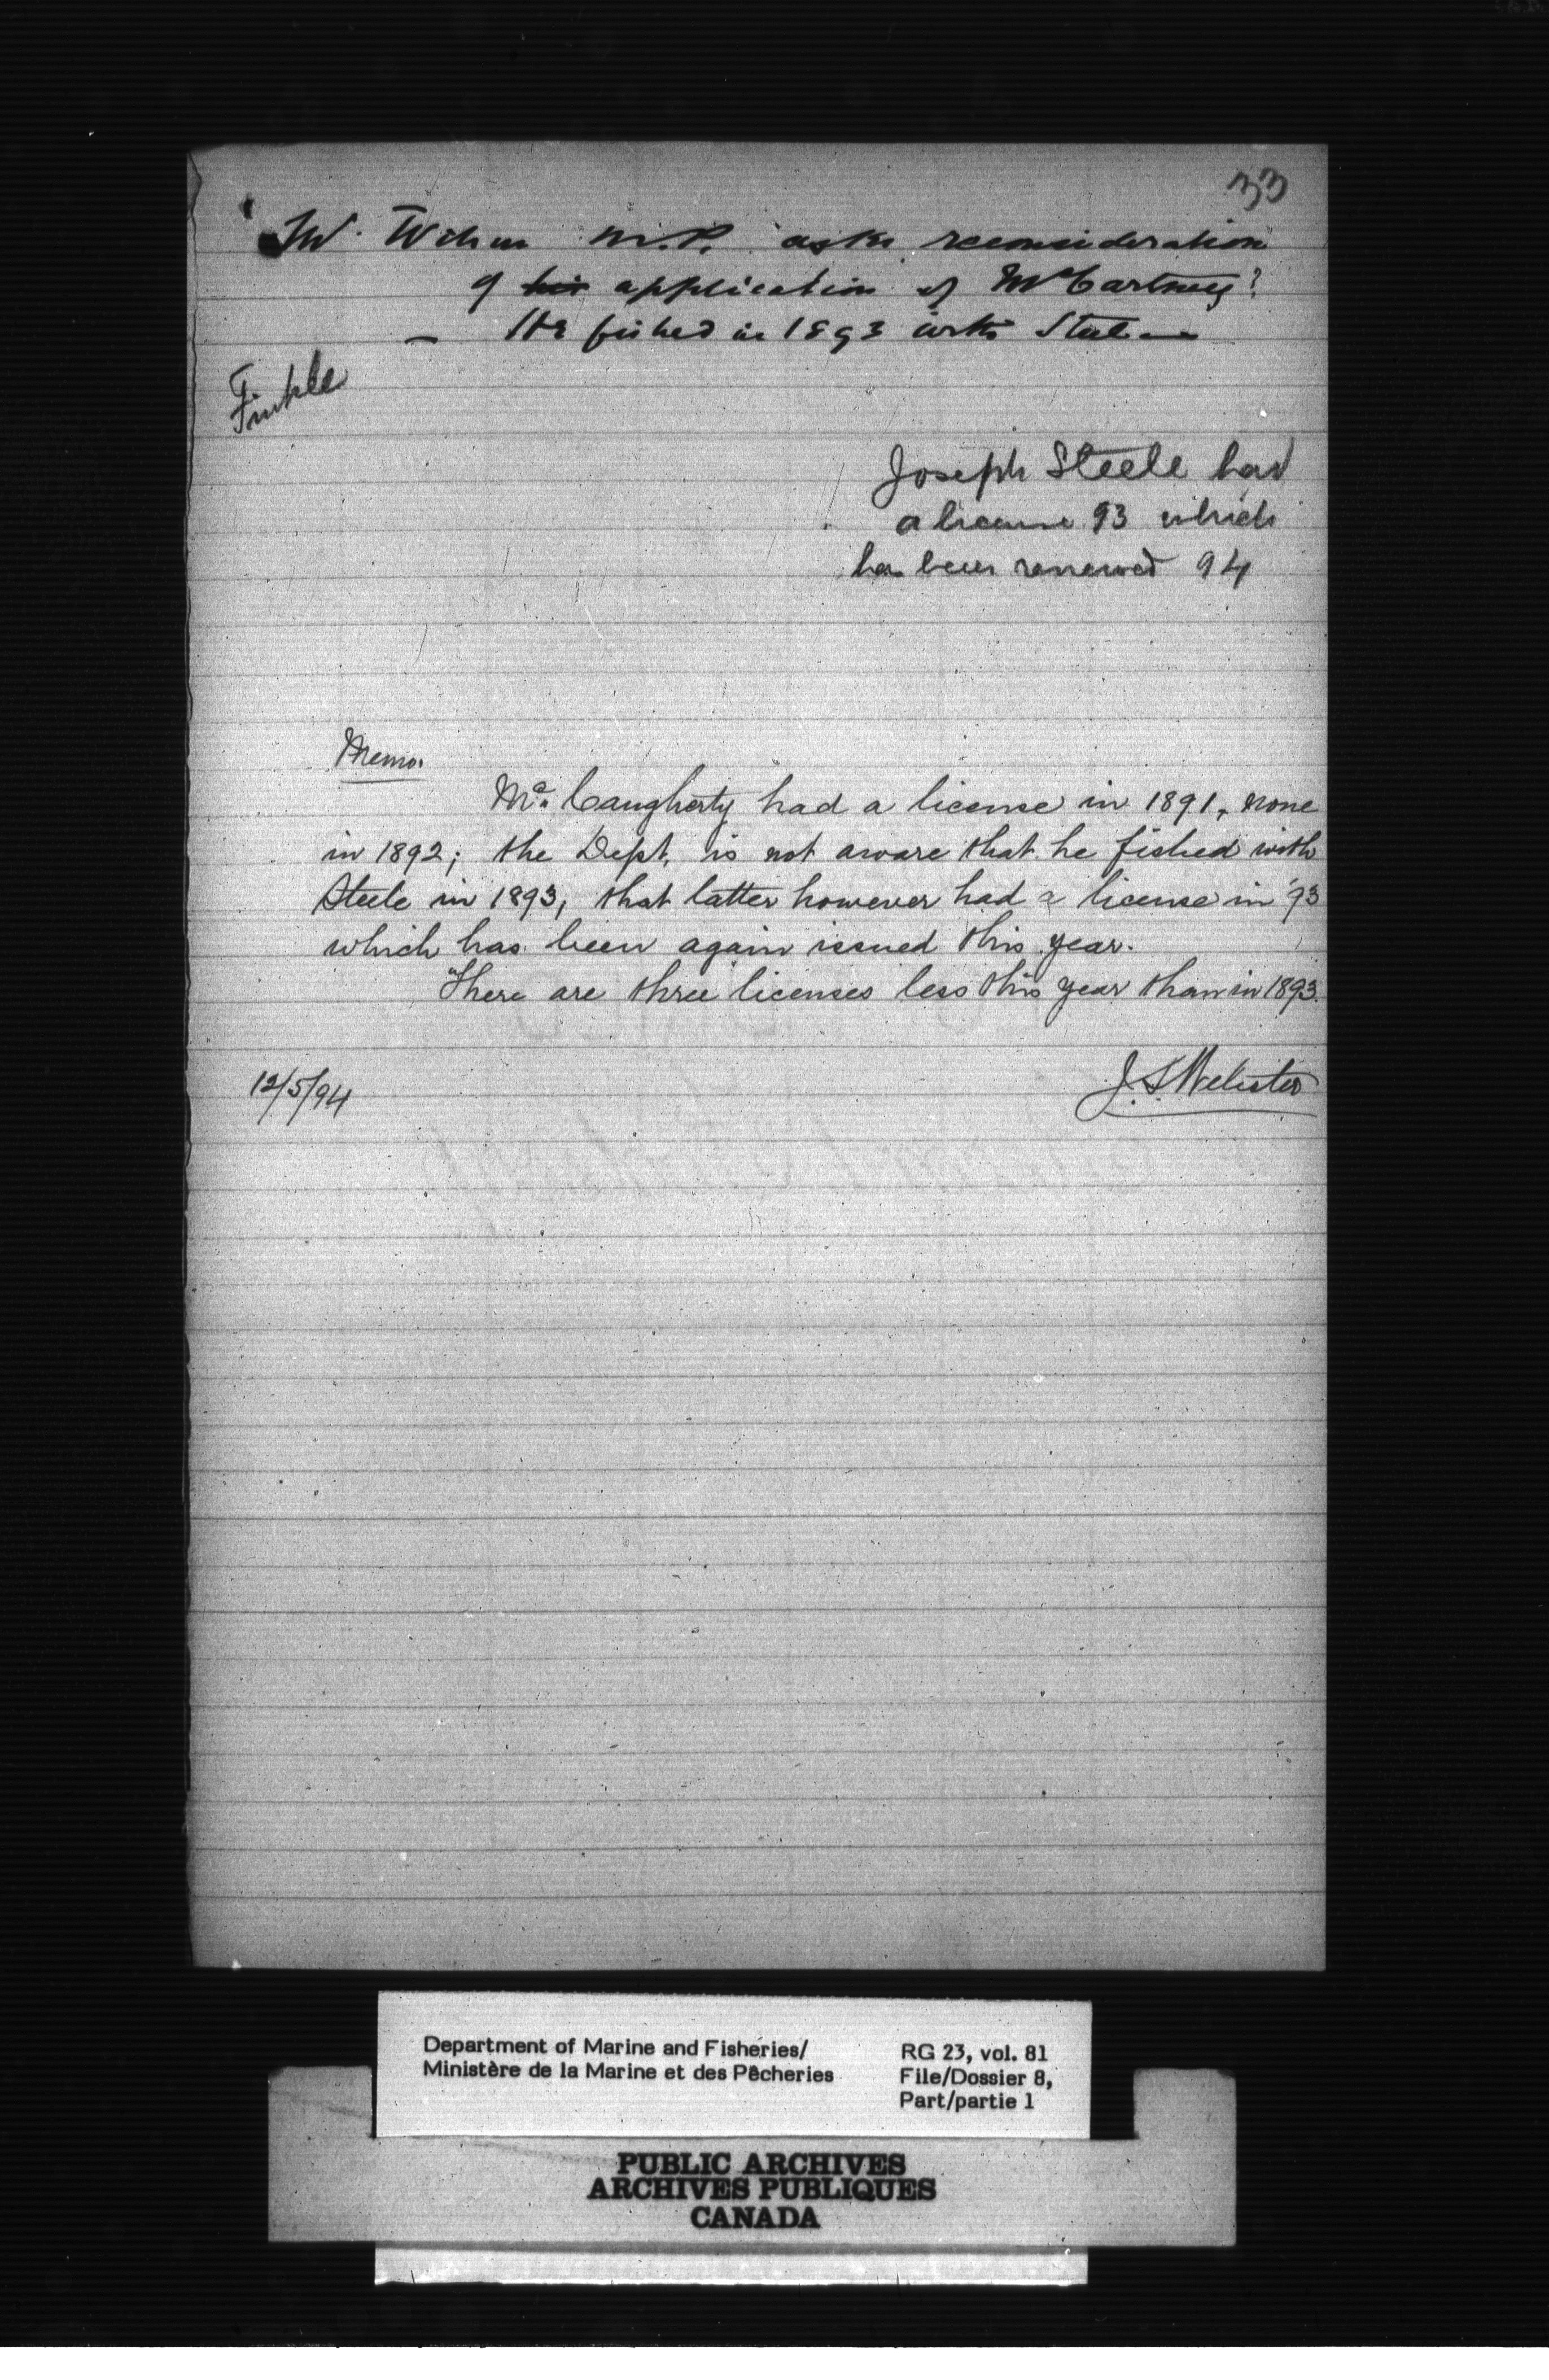 33
W. Wilson M.P. asks reconsideration
of his application of McCartney?
— He fished in 1893 with Steel —
Joseph Steele had
a license 93 which
has been renewed 94
Memo.
Mc. Caugherty had a license in 1891, none
in 1892; the Dept. is not aware that he fished with
Steele in 1893, that latter however had a license in '93
which has been again issued this year.
There are three licenses less this year than in 1893.
12/5/94
J.S. Webster
Department of Marine and Fisheries/
Ministère de la Marine et des Pêcheries
RG 23, vol. 81
File/Dossier 8,
Part/partie 1
PUBLIC ARCHIVES
ARCHIVES PUBLIQUES
CANADA